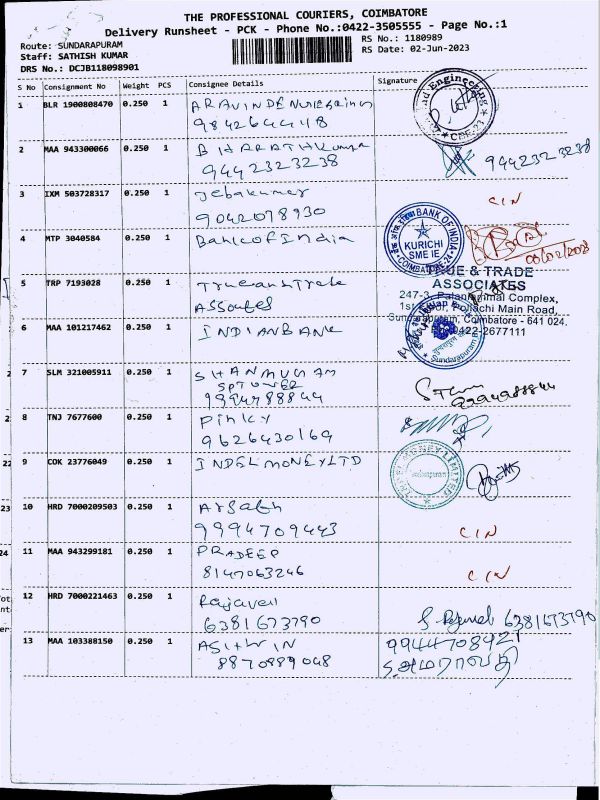 THE PROFESSIONAL COURIERS, COIMBATORE
Delivery Runsheet - PCK - Phone No.:0422-3505555 - Page No.:1
Route: SUNDARAPURAM
RS No.: 1180989
Staff: SATHISH KUMAR
RS Date: 02-Jun-2023
DRS No.: DCJB118098901
S No Consignment No Weight PCS Consignee Details Signature
1 BLR 1900808470 0.250 1
9842644418
Engineering
CBE-23
2 MAA 943300066 0.250 1 BHARATHKumar
9442323238 9442323238
3 IXM 503728317 0.250 1 Jebakumar
9042078930 CIN
4 MTP 3040584 0.250 1 Bank of India
BANK OF INDIA
KURICHI
SME IE
COIMBATORE-24
5 TRP 7193028 0.250 1
TRUE & TRADE
ASSOCIATES
Complex,
Pollachi Main Road,
Sundarapuram, Coimbatore - 641 024.
2677111
6 MAA 101217462 0.250 1 INDIANBANK
Sundarapuram
7 SLM 321005911 0.250 1 SHANMUGAM
SPTOWER
9994988844
8 TNJ 7677600 0.250 1 Pinky
9626430169
9 COK 23776049 0.250 1 INDELMONEYLTD
MONEY LIMITED
10 HRD 7000209503 0.250 1
9994709443 CIN
11 MAA 943299181 0.250 1 PRADEEP
8147063246 CIN
12 HRD 7000221463 0.250 1 Rajavel
6381673790 6381673790
13 MAA 103388150 0.250 1 ASHWIN 9944708427
8870889048 S.அமராவதி